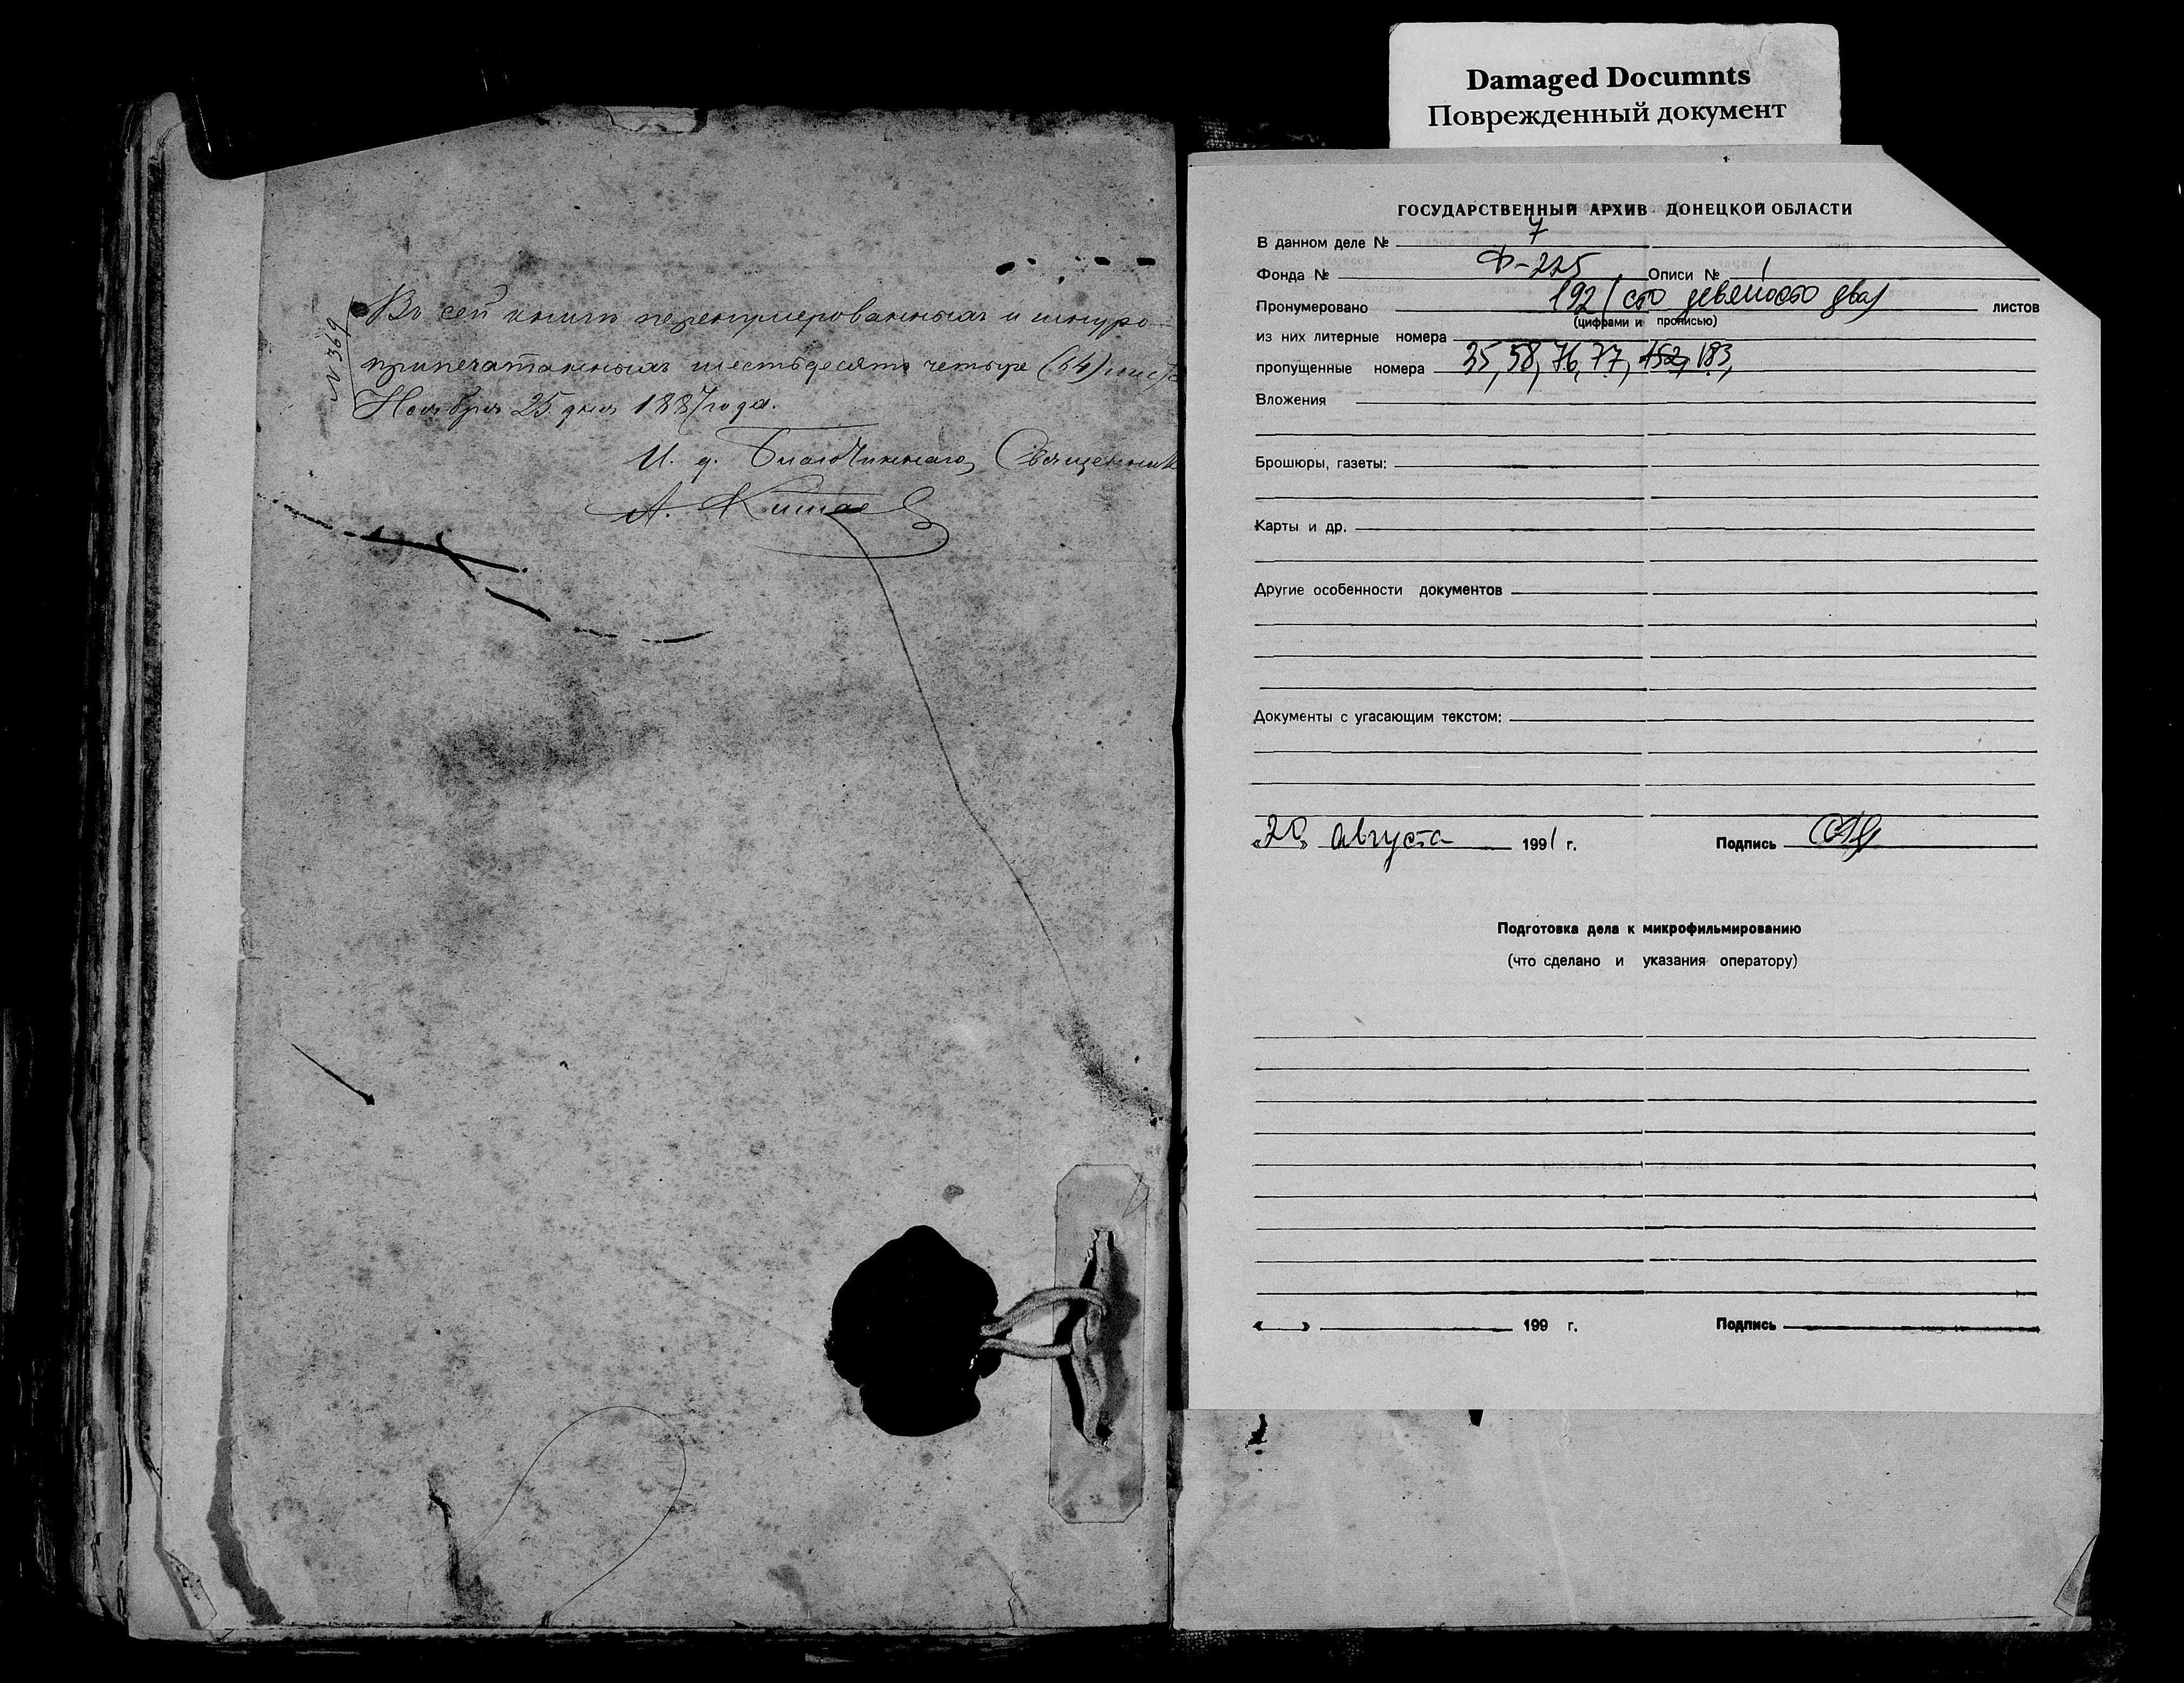 Damaged Documnts
Поврежденный документ
№ 369
Въ сей книгѣ перенумерованныхъ и шнуро-
припечатанныхъ шестьдесятъ четыре (64)
Ноября 25 дня 1887 года.
И. д. Благочиннаго, Священник
А.
ГОСУДАРСТВЕННЫЙ АРХИВ ДОНЕЦКОЙ ОБЛАСТИ
В данном деле № 7
Фонда № Ф-225 Описи № 1
Пронумеровано 192 (сто девяносто два) листов
(цифрами и прописью)
из них литерные номера
пропущенные номера 35, 58, 76, 77, 152, 183,
Вложения
Брошюры, газеты:
Карты и др.
Другие особенности документов
Документы с угасающим текстом:
«20» августа 1991 г. Подпись
Подготовка дела к микрофильмированию
(что сделано и указания оператору)
« » 199 г. Подпись